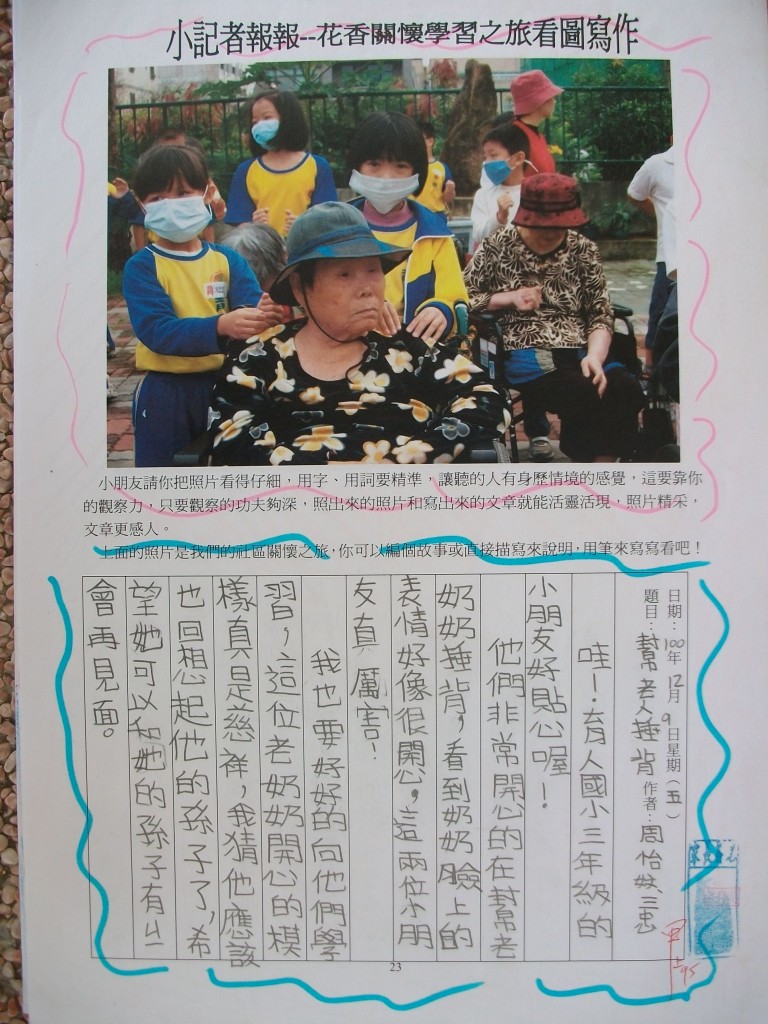 小記者報報--花香關懷學習之旅看圖寫作
小朋友請你把照片看得仔細，用字、用詞要精準，讓聽的人有身歷情境的感覺，這要靠你
的觀察力，只要觀察的功夫夠深，照出來的照片和寫出來的文章就能活靈活現，照片精采，
文章更感人。
上面的照片是我們的社區關懷之旅，你可以編個故事或直接描寫來說明，用筆來寫寫看吧！
日期：100年12月9日星期（五）
題目：幫老人捶背 作者：周怡妏三忠
哇！育人國小三年級的
小朋友好貼心喔！
他們非常開心的在幫老
奶奶捶背，看到奶奶臉上的
表情好像很開心，這兩位小朋
友真厲害！
我也要好好的向他們學
習，這位老奶奶開心的模
樣真是慈祥，我猜他應該
也回想起他的孫子了，希
望她可以和她的孫子有ㄐㄧ
會再見面。
甲上
95
23